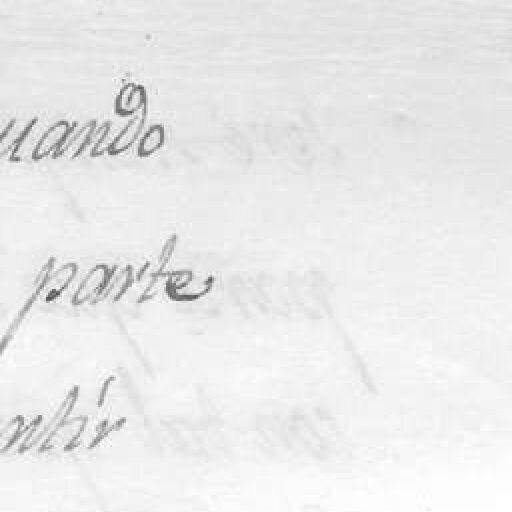 uando
parte
ntir